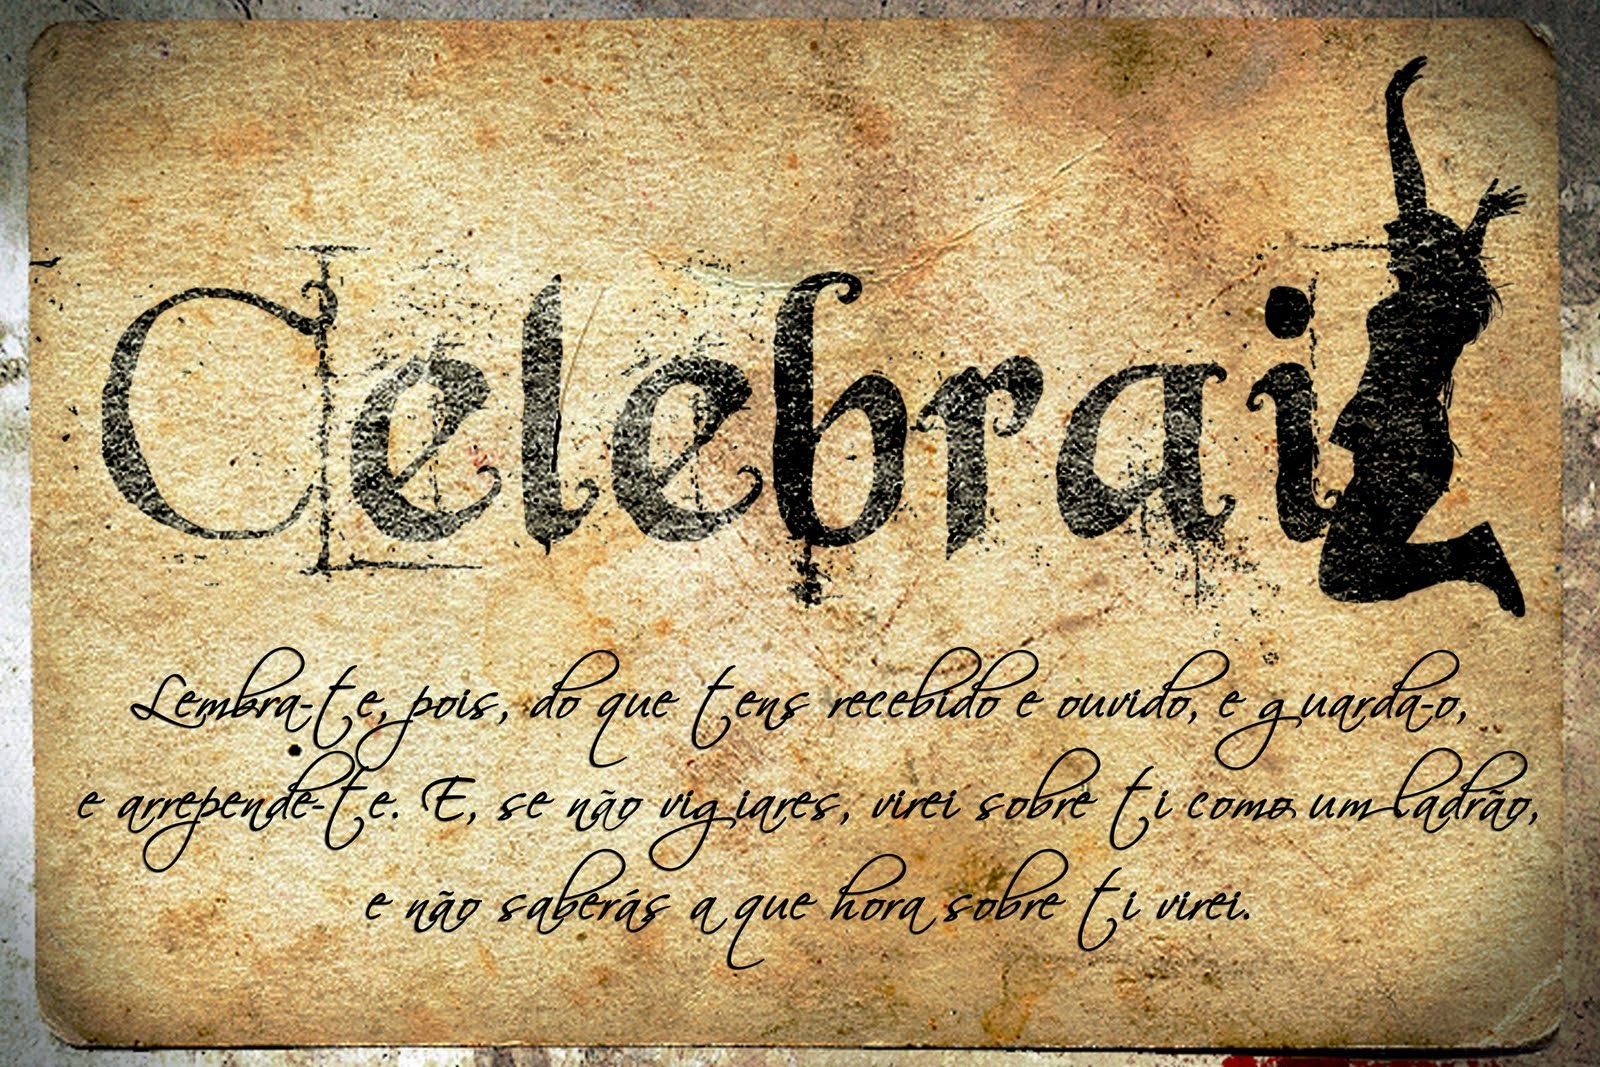 Celebrai
Lembra-te, pois, do que tens recebido e ouvido, e guarda-o,
e arrepende-te. E, se não vigiares, virei sobre ti como um ladrão,
e não saberás a que hora sobre ti virei.